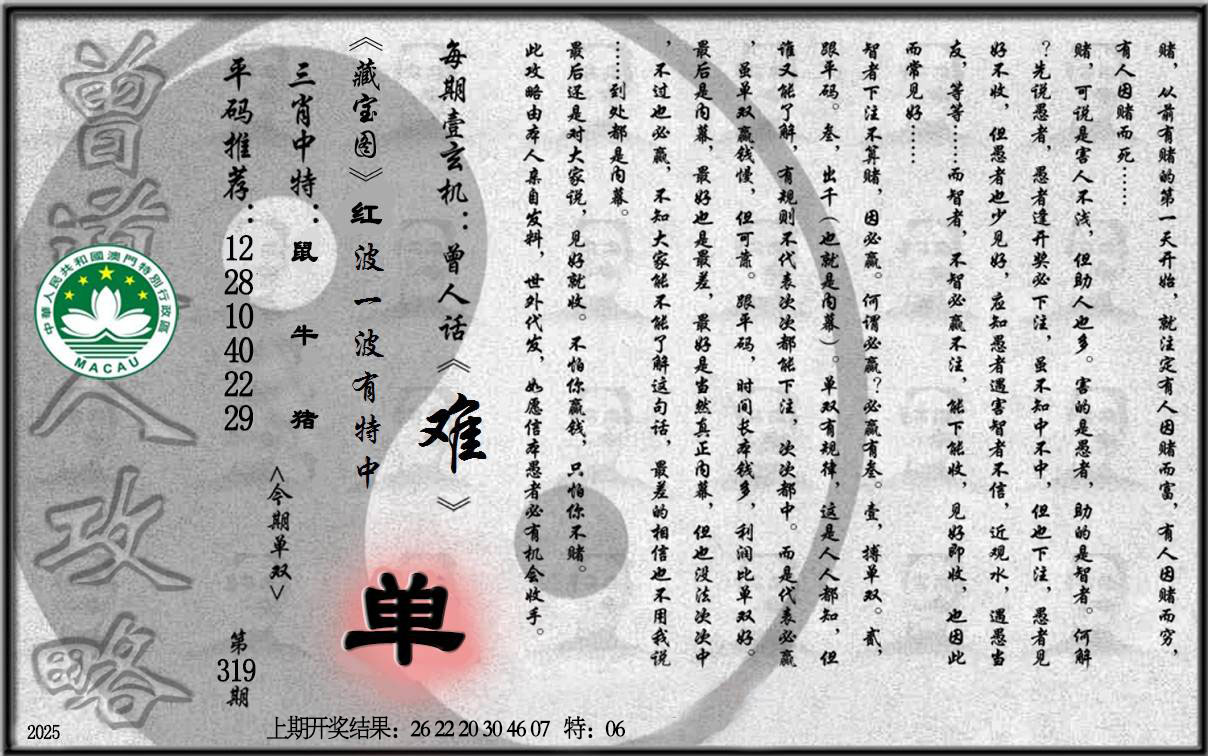 赌，从前有赌的第一天开始，就注定有人因赌而富，有人因赌而穷，
有人因赌而死……
赌，可说是害人不浅，但助人也多。害的是愚者，助的是智者。何解
？先说愚者，愚者逢开奖必下注，虽不知中不中，但也下注，愚者见
好不收，但愚者也少见好，应知愚者遇害智者不信，近观水，遇愚当
友，等等……而智者，不智必赢不注，能下能收，见好即收，也因此
而常见好……
智者下注不算赌，因必赢。何谓必赢？必赢有叁。壹，搏单双。贰，
跟平码。叁，出千（也就是内幕）。单双有规律，这是人人都知，但
谁又能了解，有规则不代表次次都能下注，次次都中。而是代表必赢
，虽单双赢钱慢，但可靠。跟平码，时间长本钱多，利润比单双好。
最后是内幕，最好也是最差，最好是当然真正内幕，但也没法次次中
，不过也必赢，不知大家能不能了解这句话，最差的相信也不用我说
……到处都是内幕。
最后还是对大家说，见好就收。不怕你赢钱，只怕你不赌。
此攻略由本人亲自发料，世外代发，如愿信本愚者必有机会收手。
每期壹玄机：曾人话《难》
《藏宝图》红波一波有特中
单
三肖中特：鼠 牛 猪
<今期单双>
平码推荐：12 28 10 40 22 29
第319期
曾道人攻略
中華人民共和國澳門特別行政區
MACAU
2025
上期开奖结果：26 22 20 30 46 07 特：06